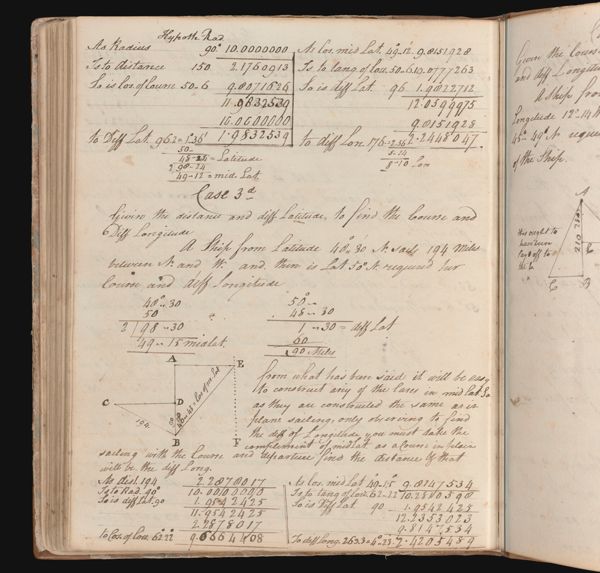 Hypoth. Rad
As Radius 90° 10.0000000
Is to distance 150 2.1760913
So is Cos. of Course 50-6 9.8071626
11.9832539
10.0000000
to Diff Lat. 96.2 = 1°36' 1.9832539
50-
48-24 = Latitude
2 98-24
49-12 = mid Lat.
As Cos. mid Lat. 49-12 9.8151928
Is to tang of Cou. 50-6 10.0777263
So is diff Lat. 96 1.9822712
12.0599975
9.8151928
to diff Lon. 176 = 2.56 2.2448047
5-14
8-10 Lon
Case 3d
Given the distance and diff Latitude, to find the Course and
Diff Longitude
A Ship from Latitude 48°.30 N. sails 194 Miles
between N. and W. and then is Lat 50° N. required her
Course and diff Longitude
48°..30
50
2 | 98..30
49..15 mid Lat.
50°..
48..30
1..30 = diff Lat
60
90 Miles
A
E
C
D
B
F
194
from what has been said it will be easy
to construct any of the Cases in mid Lat So
as they are constructed the same as in
plane sailing, only observing to find
the diff of Longitude you must take the
complement of mid Lat as a Course in plain
sailing with the Course and departure find the distance & that
will be the diff Long.
As dist. 194 2.2878017
Is to Rad. 90° 10.0000000
So is diff Lat. 90 1.9542425
11.9542425
2.2878017
to Cos. of Cou. 62.22 9.6664408
As Cos. mid Lat 49-15 9.8147534
Is to tang of Cou. 62-22 10.2810598
So is Diff Lat 90 1.9542425
12.2353023
9.8147534
To diff Long. 263.3 = 4°.23 2.4205489
Given the Cours
and diff Longitud
A Ship fro
Longitude 12°-14 W
48°-49 N requi
of the Ship.
this ought to
have been
laid off to
the
A
B
C